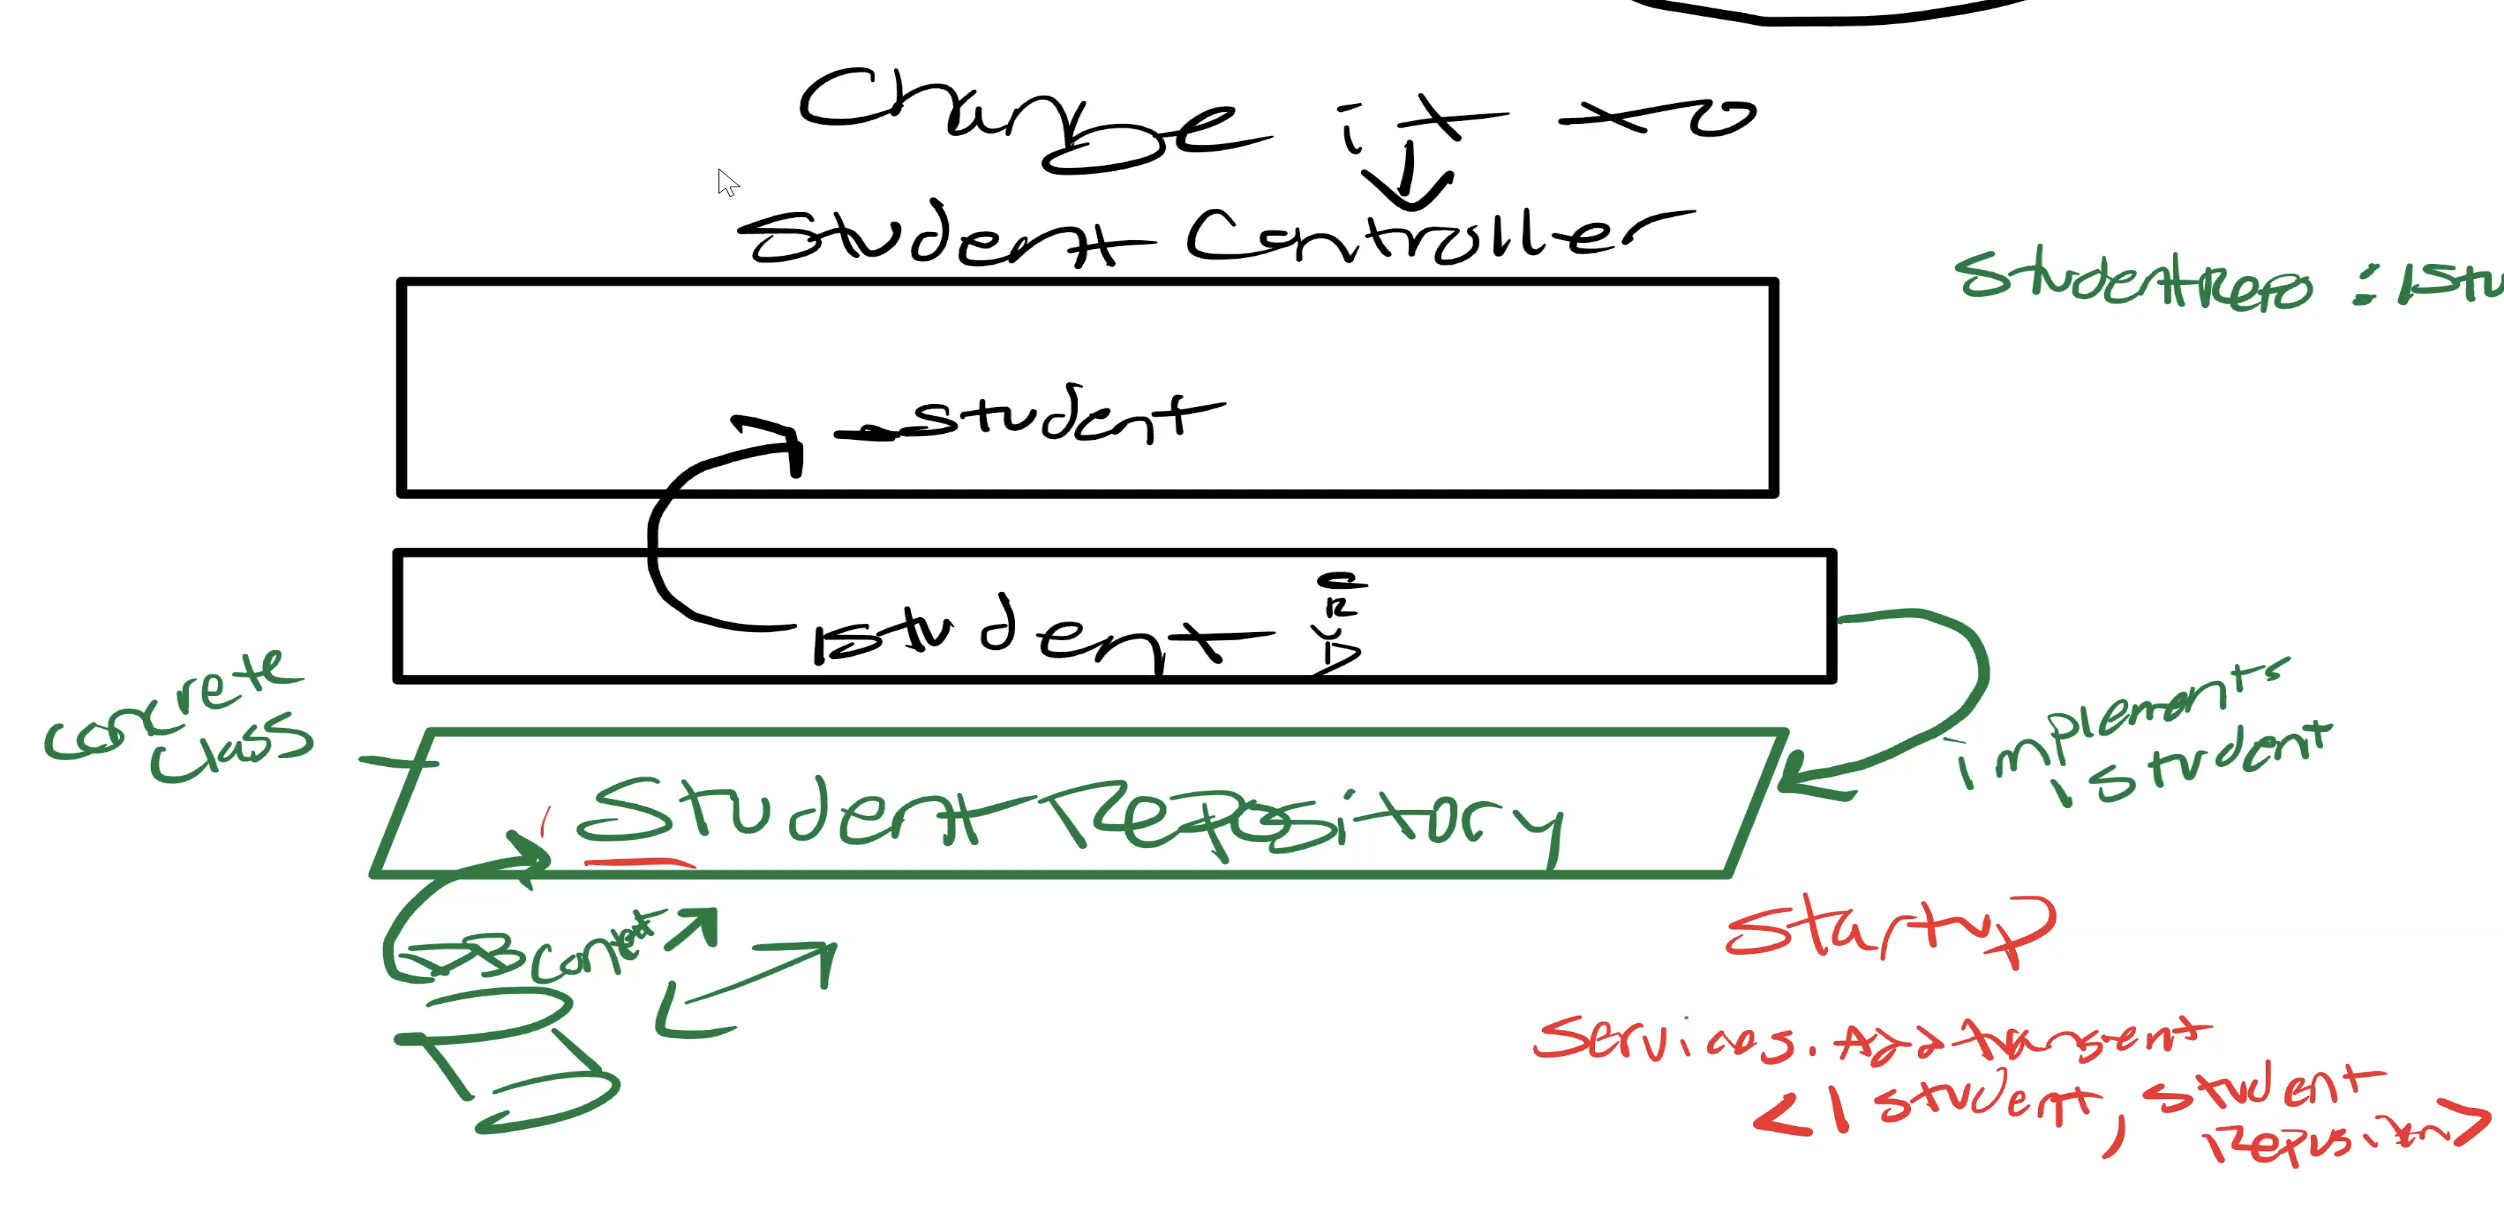 Change it to
Student Controller
StudentRepo : IStu
_Student
IStudent
concrete
class
implements
IStudent
StudentRepository
context
DB
Startup
Services.AddTransient
<IStudent, Student
Repository>